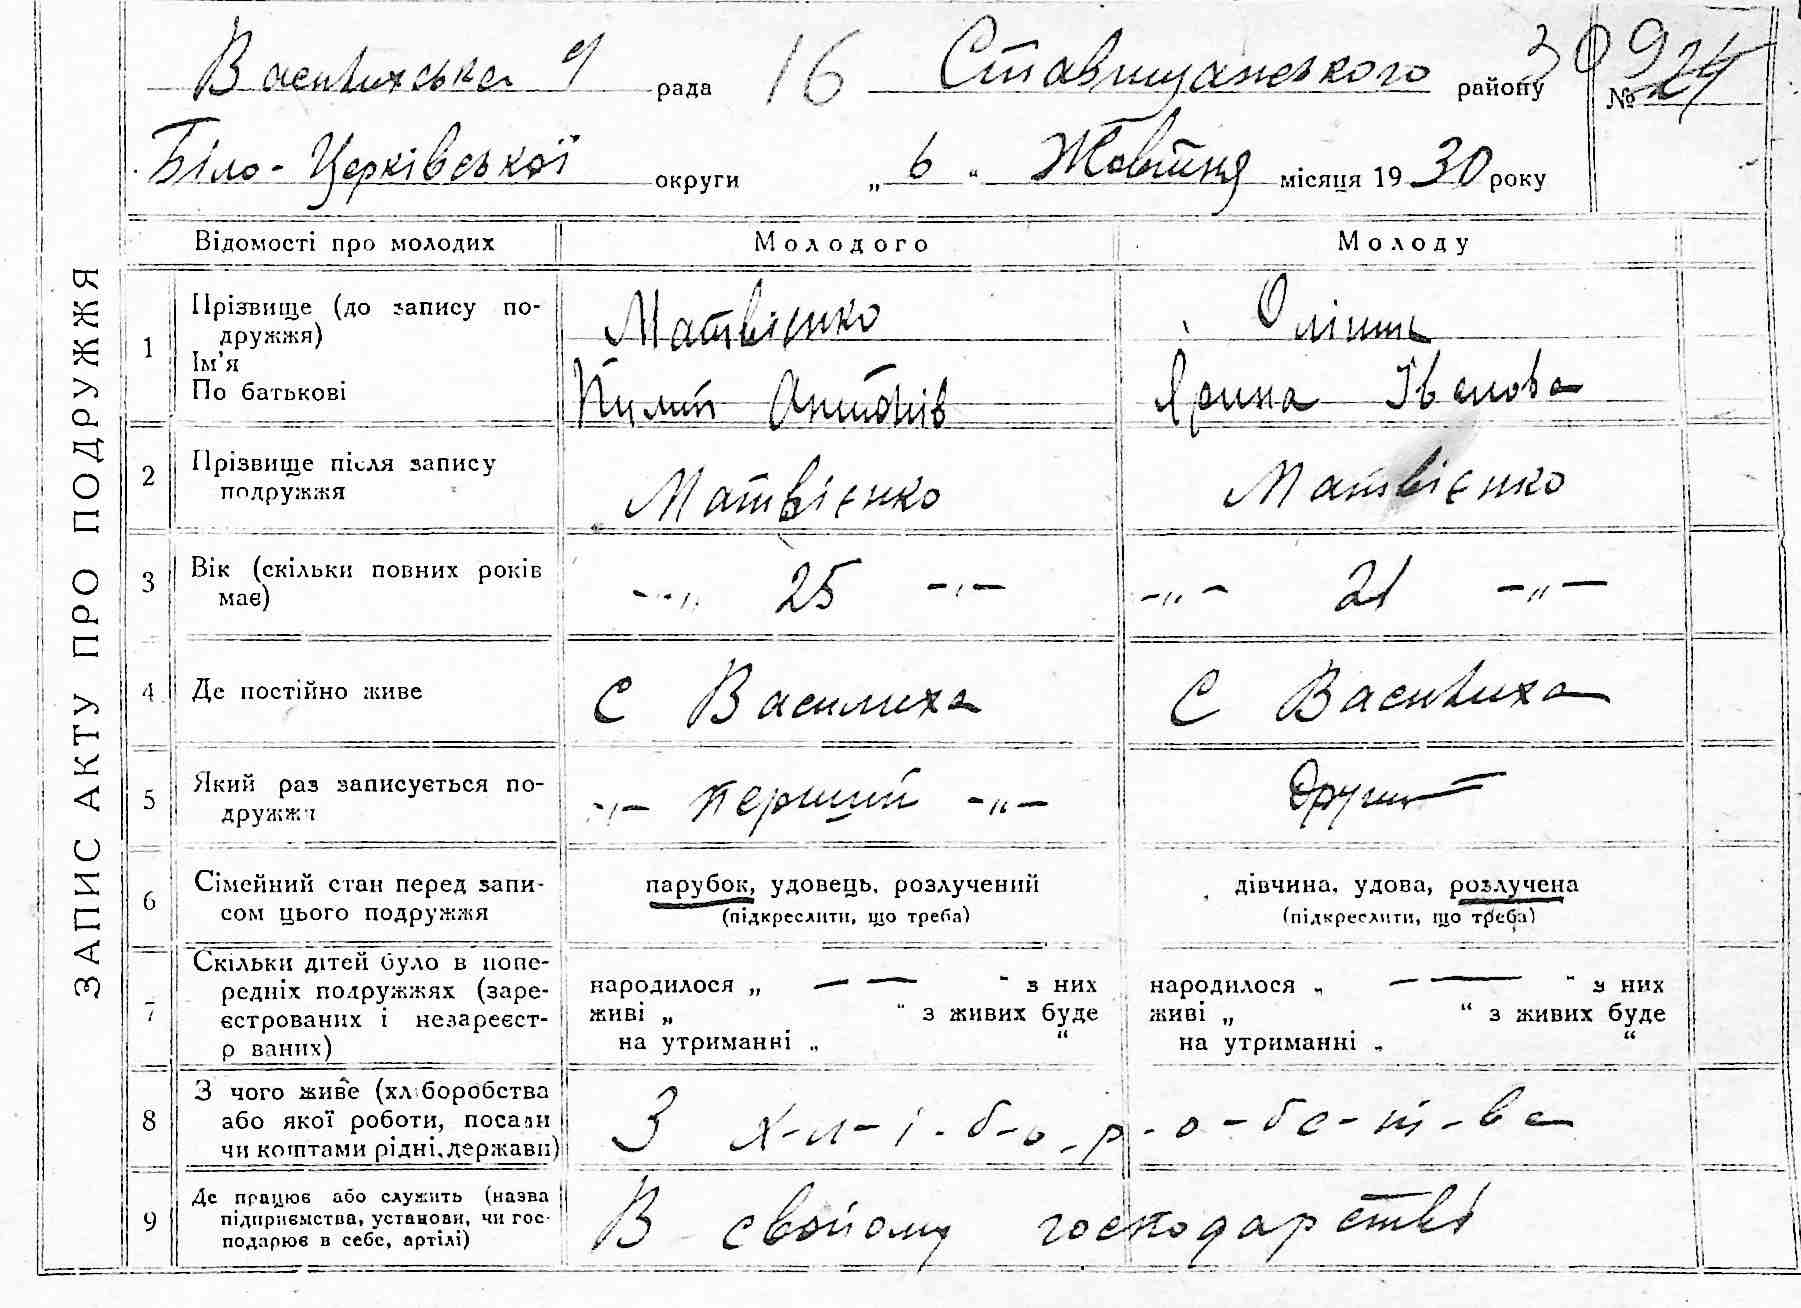 Василихська рада 16 Ставищанського району № 24
Біло-Церківської округи „ 6 " Жовтня місяця 1930 року
ЗАПИС АКТУ ПРО ПОДРУЖЖЯ
Відомості про молодих Молодого Молоду
1 Прізвище (до запису по-
дружжя)
Ім'я
По батькові
Матвієнко
Пилип Антонів
Ярина Іванова
2 Прізвище після запису
подружжя
Матвієнко Матвієнко
3 Вік (скільки повних років
має)
-„- 25 -„- -„- 21 -„-
4 Де постійно живе С Василиха С Василиха
5 Який раз записується по-
дружжя
-„- перший -„- Другий
6 Сімейний стан перед запи-
сом цього подружжя
парубок, удовець, розлучений
(підкреслити, що треба)
дівчина, удова, розлучена
(підкреслити, що треба)
7 Скільки дітей було в попе-
редніх подружжях (заре-
єстрованих і незареєст-
р ваних)
народилося „ — — " з них
живі „ " з живих буде
на утриманні „ "
народилося „ — — " з них
живі „ " з живих буде
на утриманні „ "
8 З чого живе (хліборобства
або якої роботи, посади
чи коштами рідні, держави)
З х-л-і-б-о-р-о-бс-т-ва
9 Де працює або служить (назва
підприємства, установи, чи гос-
подарює в себе, артілі)
В свойому господарстві